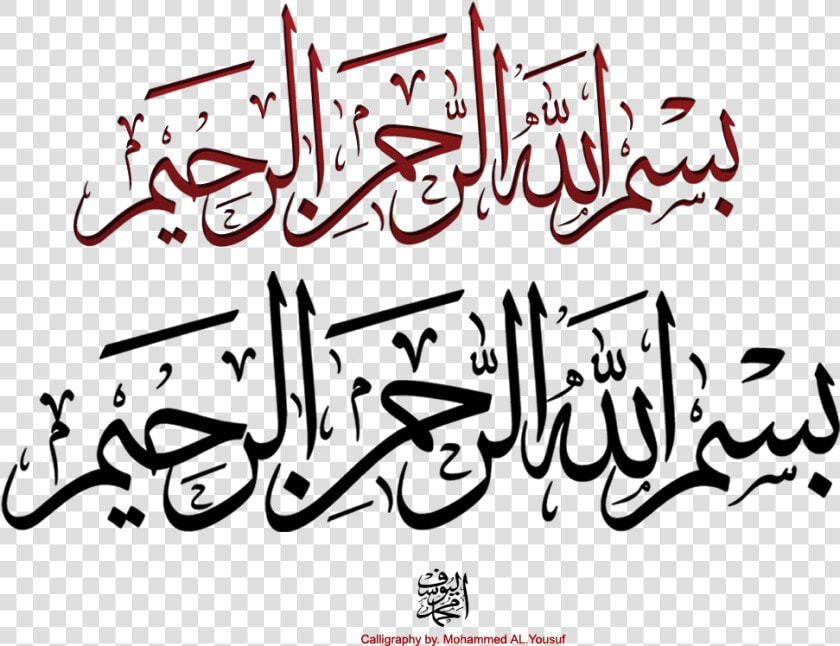 بسم الله الرحمن الرحيم
بسم الله الرحمن الرحيم
محمد اليوسف
Calligraphy by. Mohammed AL.Yousuf